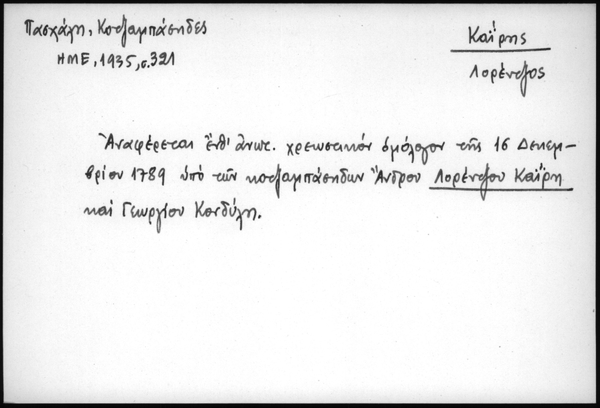 Πασχάλη, Κοτζαμπάσηδες
ΗΜΕ, 1935, σ. 321
Καΐρης
Λορέντζος
Ἀναφέρεται ἔνθ' ἀνωτ. χρεωστικόν ὁμόλογον τῆς 16 Δεκεμ-
βρίου 1789 ὑπό τῶν κοτζαμπάσηδων Ἄνδρου Λορέντζου Καΐρη
καί Γεωργίου Κονδύλη.